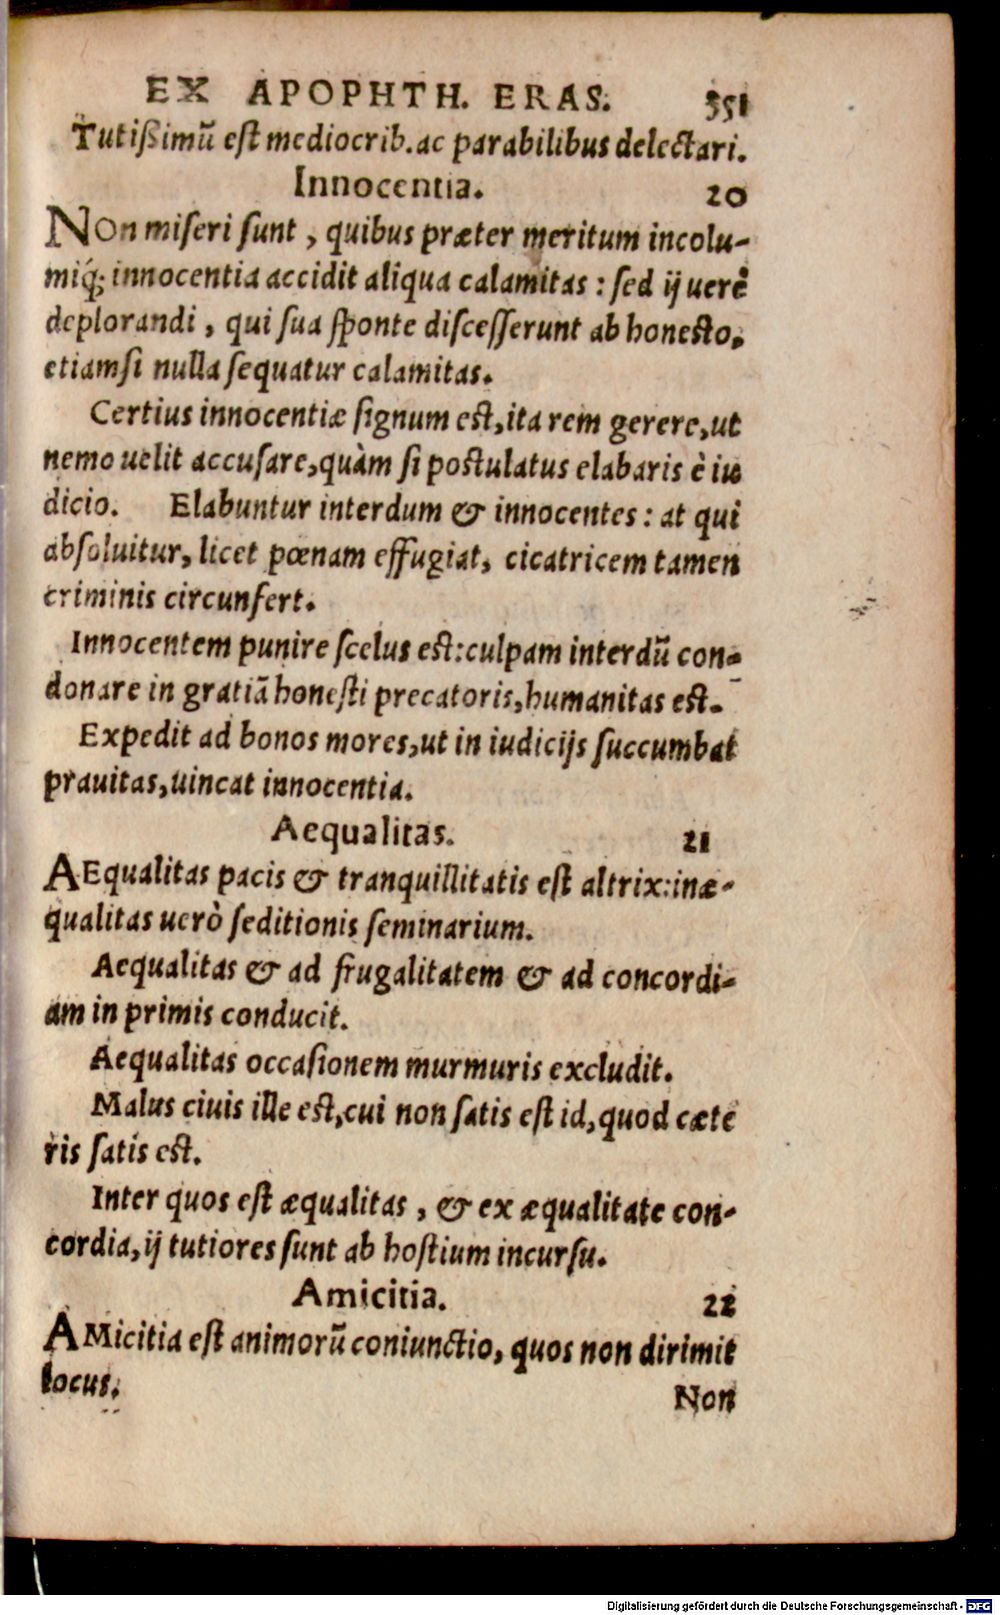 EX APOPHTH. ERAS. 351
Tutißimũ est mediocrib. ac parabilibus delectari.
Innocentia. 20
NOn miseri sunt, quibus præter meritum incolu-
miq́; innocentia accidit aliqua calamitas: sed ij uerè
deplorandi, qui sua sponte discesserunt ab honesto,
etiamsi nulla sequatur calamitas.
Certius innocentiæ signum est, ita rem gerere, ut
nemo uelit accusare, quàm si postulatus elabaris è iu
dicio. Elabuntur interdum & innocentes: at qui
absoluitur, licet pœnam effugiat, cicatricem tamen
criminis circunfert.
Innocentem punire scelus est: culpam interdũ con-
donare in gratiã honesti precatoris, humanitas est.
Expedit ad bonos mores, ut in iudicijs succumbat
prauitas, uincat innocentia.
Aequalitas. 21
AEqualitas pacis & tranquillitatis est altrix: inæ-
qualitas uerò seditionis seminarium.
Aequalitas & ad frugalitatem & ad concordi-
am in primis conducit.
Aequalitas occasionem murmuris excludit.
Malus ciuis ille est, cui non satis est id, quod cæte
ris satis est.
Inter quos est æqualitas, & ex æqualitate con-
cordia, ij tutiores sunt ab hostium incursu.
Amicitia. 22
AMicitia est animorũ coniunctio, quos non dirimit
locus.
Non
Digitalisierung gefördert durch die Deutsche Forschungsgemeinschaft - DFG